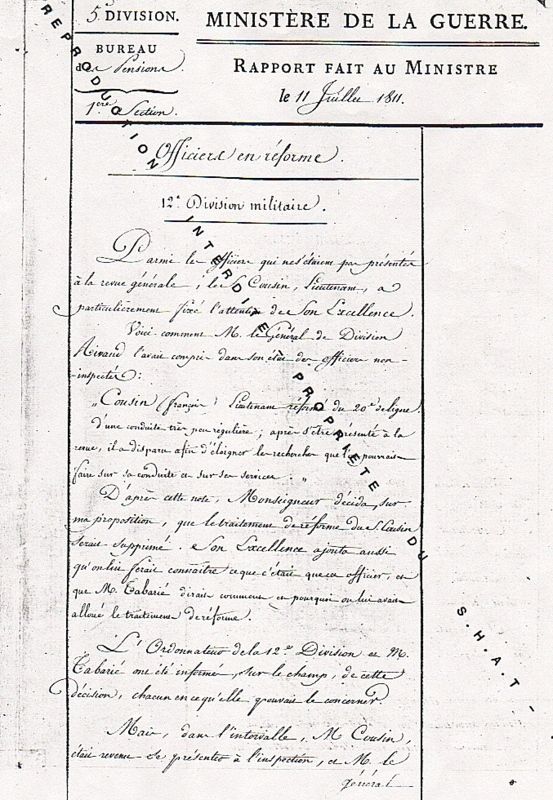 5.e DIVISION.
BUREAU
des Pensions.
1.ère Section.
MINISTÈRE DE LA GUERRE.
RAPPORT FAIT AU MINISTRE
le 11 Juillet 1811.
Officiers en réforme.
12.e Division militaire.
Parmi les officiers qui ne s'étaient pas présentés
à la revue générale, le S.r Cousin, Lieutenant, a
particulièrement fixé l'attention de Son Excellence.
Voici comment M. le Général de Division
Rivaud l'avait compris dans son état des officiers non-
inspectés:
"Cousin (françois) Lieutenant réformé du 20.e de ligne.
d'une conduite très peu régulière; après s'être présenté à la
revue, il a disparu afin d'éloigner les recherches que l'on pourrait
faire sur sa conduite et sur ses services. "
D'après cette note, Monseigneur décida, sur
ma proposition, que le traitement de réforme du S.r Cousin
serait supprimé. Son Excellence ajouta aussi
qu'on lui ferait connaître ce que c'était que cet officier, et
que M. Tabarié dirait comment et pourquoi on lui avait
alloué le traitement de réforme.
L'Ordonnateur de la 12.e Division et M.
Tabarié ont été informés, sur le champ, de cette
décision, chacun en ce qu'elle pouvait le concerner.
Mais, dans l'intervalle, M. Cousin,
était revenu se présenter à l'inspection, et M. le
général
REPRODUCTION INTERDITE - PROPRIETE DU S.H.A.T -